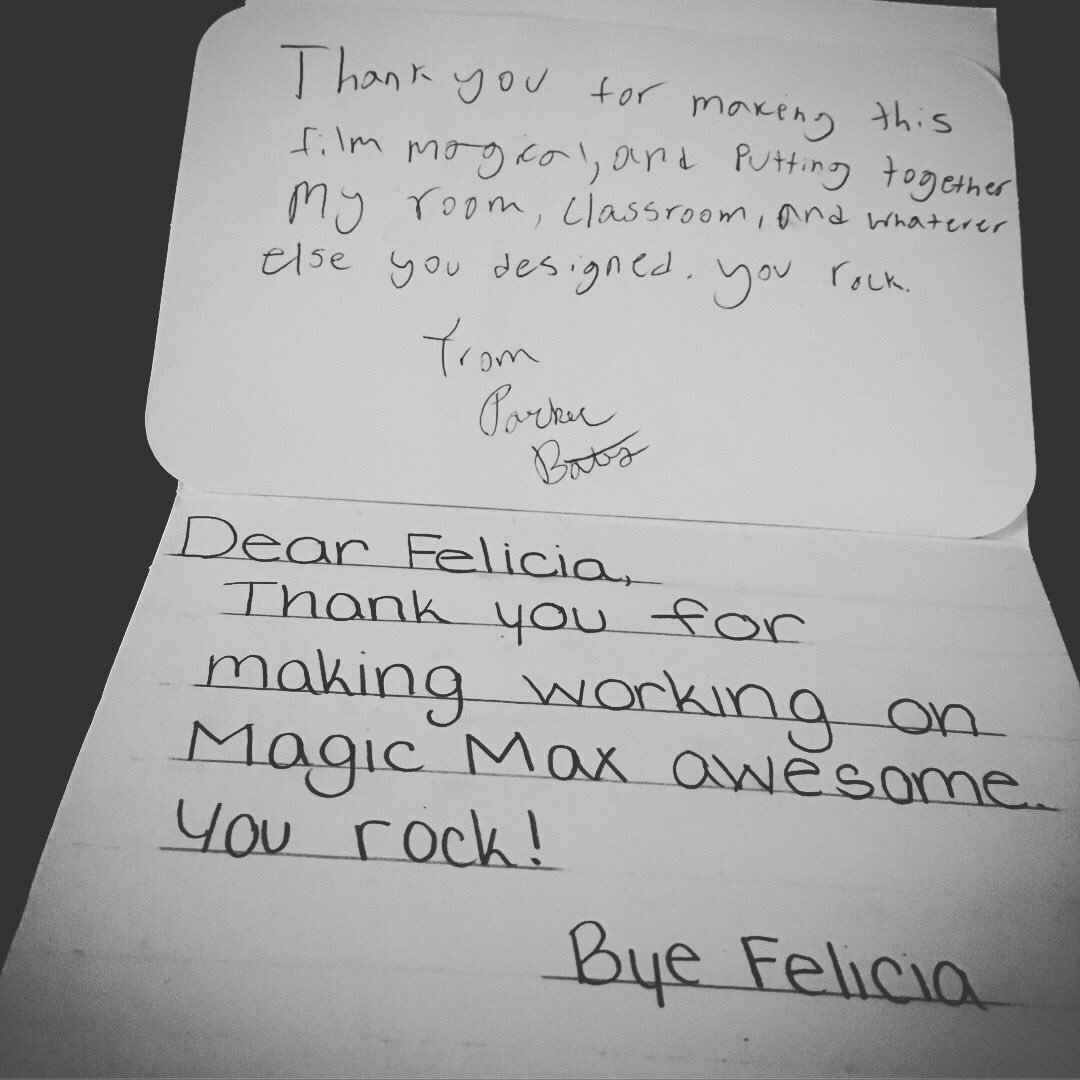 Thank you for making this
film magical, and Putting together
My room, classroom, and whatever
else you designed. you rock.
From
Parker
Bates
Dear Felicia,
Thank you for
making working on
Magic Max awesome.
You rock!
Bye Felicia